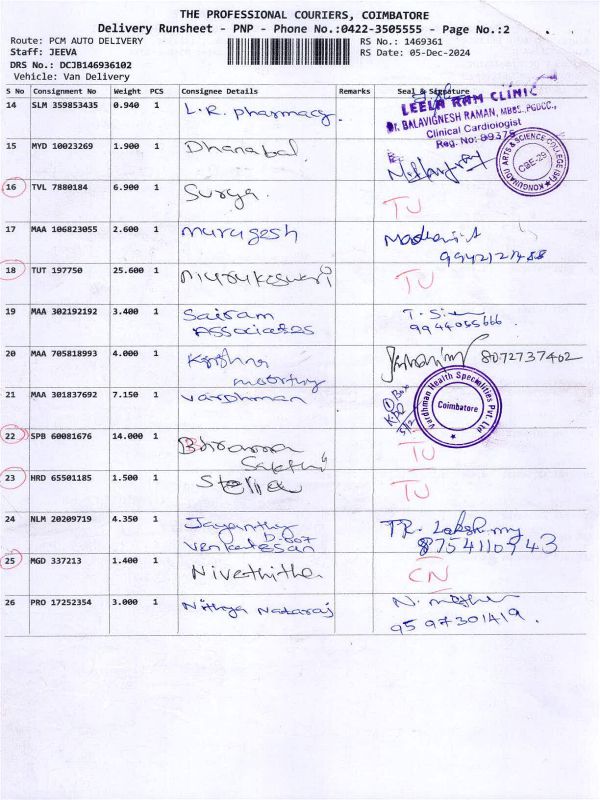 THE PROFESSIONAL COURIERS, COIMBATORE
Delivery Runsheet - PNP - Phone No.:0422-3505555 - Page No.:2
Route: PCM AUTO DELIVERY RS No.: 1469361
Staff: JEEVA RS Date: 05-Dec-2024
DRS No.: DCJB146936102
Vehicle: Van Delivery
S No Consignment No Weight PCS Consignee Details Remarks Seal & Signature
14 SLM 359853435 0.940 1 L.R. pharmacy.
LEELA RAM CLINIC
Dr. BALAVIGNESH RAMAN, MBBS., PGDCC.,
Clinical Cardiologist
Reg. No: 89375
15 MYD 10023269 1.900 1 Dhanabal
KONGUNADU ARTS & SCIENCE COLLEGE (SF)
CBE-29
16 TVL 7880184 6.900 1 Surya. TU
17 MAA 106823055 2.600 1 murugesh
18 TUT 197750 25.600 1 TU
19 MAA 302192192 3.400 1 Sairam
Associates
9944055666.
20 MAA 705818993 4.000 1 Krishna
moorthy
8072737402
21 MAA 301837692 7.150 1 Vardhman
Vardhman Health Specialities Pvt. Ltd
Coimbatore
① Box
22 SPB 60081676 14.000 1
Sakthi
TU
23 HRD 65501185 1.500 1 Stella TU
24 NLM 20209719 4.350 1 Jayanthy
Venkatesan
TR. Lakshmy
8754110943
25 MGD 337213 1.400 1 Nivethitha CN
26 PRO 17252354 3.000 1 Nithya Nataraj
9597301419.